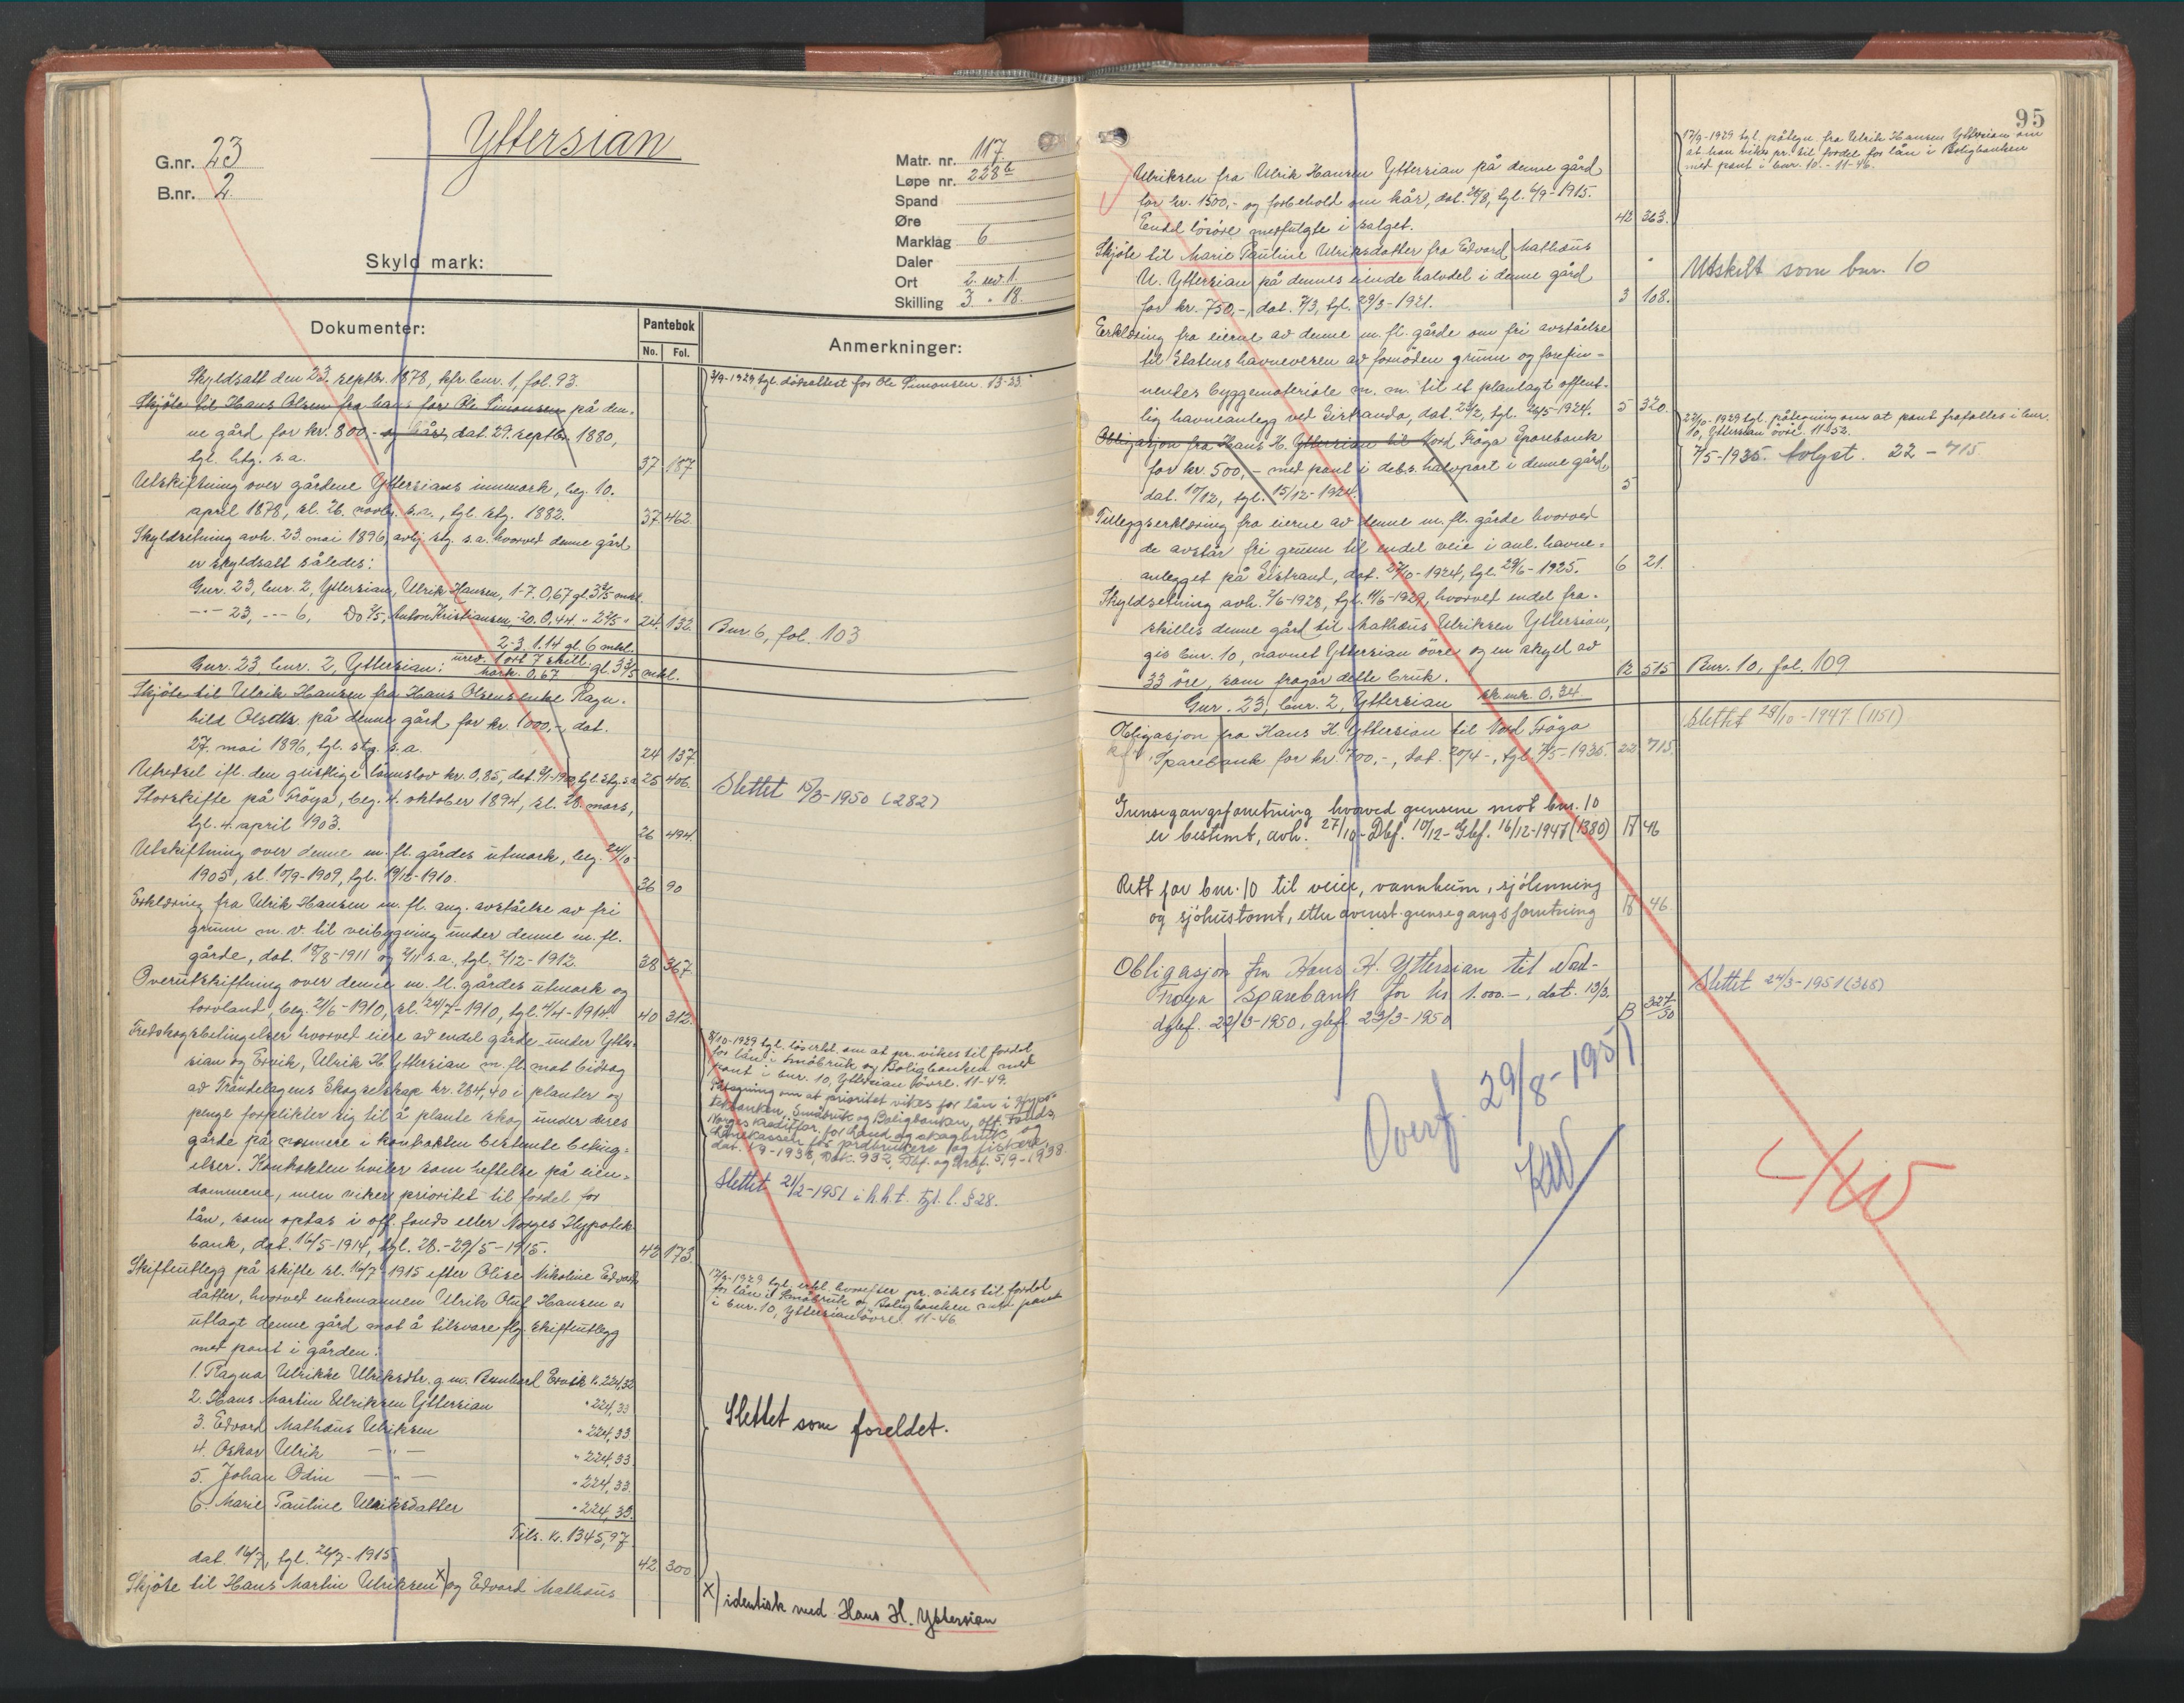 Yttersian
G.nr. 23
B.nr. 2
Matr. nr. 117
Løpe nr. 228 b
Spand
Øre
Marklag 6
Daler
Ort 2. ned. 1.
Skilling 3 " 18.
Skyld mark:
Dokumenter:
Pantebok
No. Fol.
Anmerkninger:
Skyldsatt den 23. septbr. 1878, kfr. bnr. 1, fol. 93.
Skjöte til Hans Olsen fra hans far Ole Simonsen på den-
ne gård for kr. 800,- og kår, dat. 29. septbr. 1880,
tgl. htg. s.a. 37 187
2/9-1929 tgl. dödsattest for Ole Simonsen. 13-23.
Utskiftning over gårdene Yttersians innmark, beg. 10.
april 1878, sl. 26. novbr. s.a., tgl. stg. 1882. 37 462
Skyldsetning avh. 23. mai 1896, avhj. stg. s.a. hvorved denne gård
er skyldsatt således:
Gnr. 23, bnr. 2, Yttersian, Ulrik Hansen, 1-7. 0,67 gl. 3 3/5 mkl.
-"- 23, -"- 6, Do 2/5, Anton Kristiansen, -20. 0,44 " 2 2/5 " 24. 132.
Bnr. 6, fol. 103
2-3. 1.14 gl. 6 mkl.
Gnr. 23, bnr. 2, Yttersian: ured. 1 ort 7 skill. mark. 0,67 gl. 3 3/5 mkl.
Skjöte til Ulrik Hansen fra Hans Olsens enke Ragn-
hild Olsdtr. på denne gård for kr. 1000,-, dat.
27. mai 1896, tgl. stg. s.a. 24 137
Utredsel ifl. den gustlige lannslov kr. 0,85, tgl. stg. s.a. 25 406.
Slettet 15/3-1950 (282)
Storskifte på Fröya, beg. 4. oktober 1894, sl. 28. mars,
tgl. 4. april 1903. 26 494
Utskiftning over denne m. fl. gårdes utmark, beg. 24/10-
1905, sl. 10/9-1909, tgl. 19/12-1910. 36 90
Erklæring fra Ulrik Hansen m. fl. ang. avståelse av fri
grunn m. v. til veibygning under denne m. fl.
gårde, dat. 19/8-1911 og 2/11 s.a., tgl. 2/12-1912. 38 367.
Overutskiftning over denne m. fl. gårdes utmark og
torvland, beg. 21/6-1910, sl. 24/7-1910, tgl. 4/4-1914. 40 312.
Fredskogsbetingelser hvorved eiere av endel gårde under Ytter-
sian og Ervik, Ulrik H. Yttersian m. fl. mot bidrag
av Tröndelagens Skogselskap kr. 284,40 i planter og
penge forplikter sig til å plante skog under deres
gårde på nærmere i kontrakten bestemte beting-
elser. Kontrakten hviler som heftelse på eien-
dommene, men viker prioritet til fordel for
lån, som optas i off. fonds eller Norges Hypotek-
bank, dat. 16/5-1914, tgl. 28.-29/5-1915. 42 173.
8/10-1929 tgl. löserkl. om at pr. vikes til fordel
for lån i Småbruk og Boligbanken med
pant i bnr. 10, Yttersian övre. 11-49.
Påtegning om at prioritet vikes for lån i Hypo-
tekbanken, Småbruk og Boligbanken, off. Fonds,
Norges Kredittfor. for land og skogbruk og
Lånekassen for jordbrukere og fiskere,
dat. 1/9-1938, Dok. 932, Dbf. og Gbf. 5/9-1938.
Slettet 21/2-1951 i h.h.t. tgl. l. § 28.
Skifteutlegg på skifte sl. 16/7-1915 efter Olise Nikoline Edvards-
datter, hvorved enkemannen Ulrik Oluf Hansen er
utlagt denne gård mot å tilsvare flg. skifteutlegg
med pant i gården:
1. Ragna Ulrikke Ulriksdtr. g. m. Bernhard Ervik k. 224,32
2. Hans Martin Ulriksen Yttersian " 224,33
3. Edvard Mathæus Ulriksen " 224,33
4. Oskar Ulrik -"- " 224,33.
5. Johan Odin -"- " 224,33.
6. Marie Pauline Ulriksdatter " 224,33.
Tils. kr. 1345,97.
dat. 16/7, tgl. 26/7-1915. 42. 300
17/9-1929 tgl. erkl. hvorefter pr. vikes til fordel
for lån i Småbruk og Boligbanken med pant
i bnr. 10, Yttersian övre. 11-46.
Slettet som foreldet.
Skjöte til Hans Martin Ulriksen x) og Edvard Mathæus
x) identisk med Hans H. Yttersian
95
Ulriksen fra Ulrik Hansen Yttersian på denne gård
for kr. 1500,- og forbehold om kår, dat. 26/8, tgl. 6/9-1915.
Endel lösöre medfulgte i salget. 42 363.
17/9-1929 tgl. påtegn. fra Ulrik Hansen Yttersian om
at han viker pr. til fordel for lån i Boligbanken
med pant i bnr. 10.- 11-46.
Skjöte til Marie Pauline Ulriksdatter fra Edvard Mathæus
U. Yttersian på dennes eiende halvdel i denne gård
for kr. 750,-, dat. 7/3, tgl. 29/3-1921. 3 108.
Utskilt som bnr. 10
Erklæring fra eierne av denne m. fl. gårde om fri avståelse
til Statens havnevesen av fornöden grunn og forefin-
nendes byggemateriale m. m. til et planlagt offent-
lig havneanlegg ved Sistranda, dat. 23/2, tgl. 26/5-1924. 5 320.
Obligasjon fra Hans H. Yttersian til Nord Fröya Sparebank
for kr. 500,- med pant i deb.s. halvpart i denne gård,
dat. 10/12, tgl. 15/12-1924. 5
22/10-1929 tgl. påtegning om at pant frafalles i bnr.
10, Yttersian övre. 11-52.
7/5-1935. avlyst. 22 - 715
Tilleggserklæring fra eierne av denne m. fl. gårde hvorved
de avstår fri grunn til endel veie i anl. havne-
anlegget på Sistrand, dat. 27/10-1924, tgl. 29/6-1925. 6 21.
Skyldsetning avh. 2/6-1928, tgl. 11/6-1929, hvorved endel fra-
skilles denne gård til Mathæus Ulriksen Yttersian,
gis bnr. 10, navnet Yttersian övre og en skyld av
33 öre, som fragår dette bruk. 12 515
Bnr. 10, fol. 109
Gnr. 23, bnr. 2, Yttersian sk. mk. 0,34.
Obligasjon fra Hans H. Yttersian til Nord Fröya
Sparebank for kr. 700,-, dat. 20/4-, tgl. 7/5-1935. 22 715
Slettet 28/10-1947 (1151)
Grensegangsforretning hvorved grensene mot bnr. 10
er bestemt, avh. 27/10-Dbf. 10/12-Gbf. 16/12-1947 (1380) 17 46
Rett for bnr. 10 til veier, vannbrunn, sjölinning
og sjöhustomt, etter ovenst. grensegangsforretning 17 46.
Obligasjon fra Hans H. Yttersian til Nord-
Fröya Sparebank for kr 1.000.-, dat. 13/3.
dgbf. 22/3-1950, gbf. 23/3-1950 B 327/50
Slettet 24/3-1951 (365)
Overf. 29/8-1951
KW